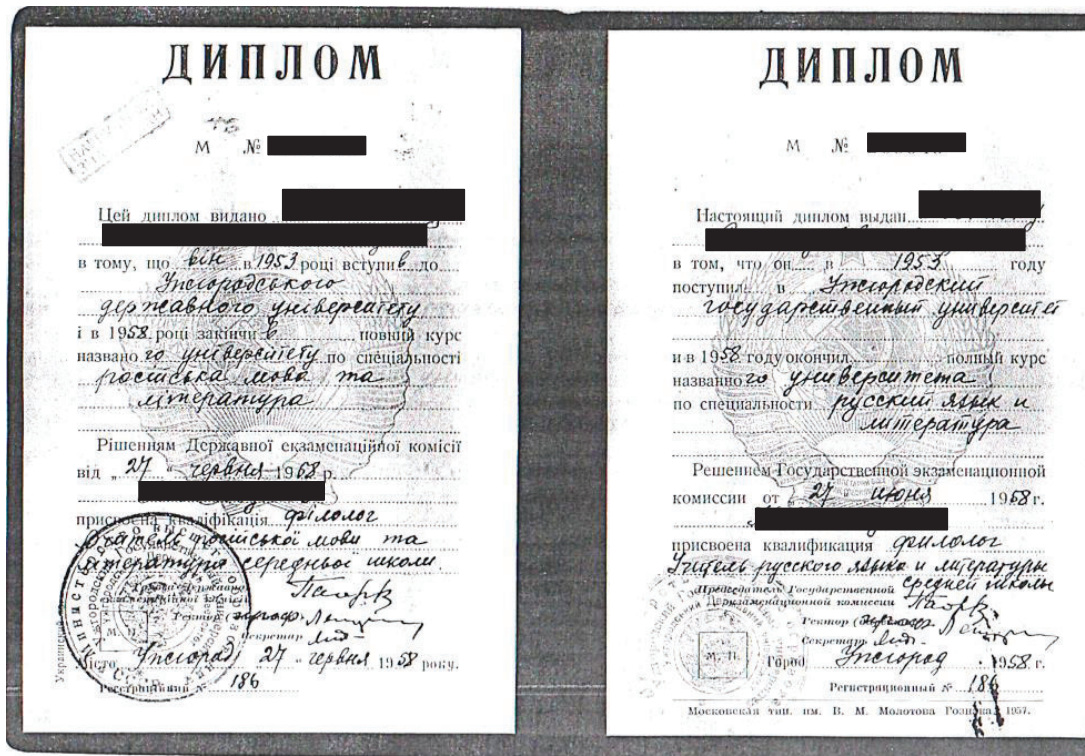 ДИПЛОМ
М №
Цей диплом видано
в тому, що він в 1953 році вступив до
Ужгородського
державного університету
і в 1958 році закінчив повний курс
названого університету по спеціальності
російська мова та
література
Рішенням Державної екзаменаційної комісії
від „27“ червня 1958 р.
присвоєна кваліфікація філолог
Вчитель російської мови та
літератури середньої школи.
Ректор
Секретар
Місто Ужгород 27 „ червня 1958 року.
Реєстраційний № 186
ДИПЛОМ
М №
Настоящий диплом выдан
в том, что он в 1953 году
поступил в Ужгородский
государственный университет
и в 1958 году окончил полный курс
названного университета
по специальности русский язык и
литература
Решением Государственной экзаменационной
комиссии от „27“ июня 1958 г.
присвоена квалификация филолог
Учитель русского языка и литературы
средней школы
Председатель Государственной
экзаменационной комиссии
Ректор
Секретарь
М. П.
Город Ужгород 1958 г.
Регистрационный № 186
Московская тип. им. В. М. Молотова Гознака. 1957.